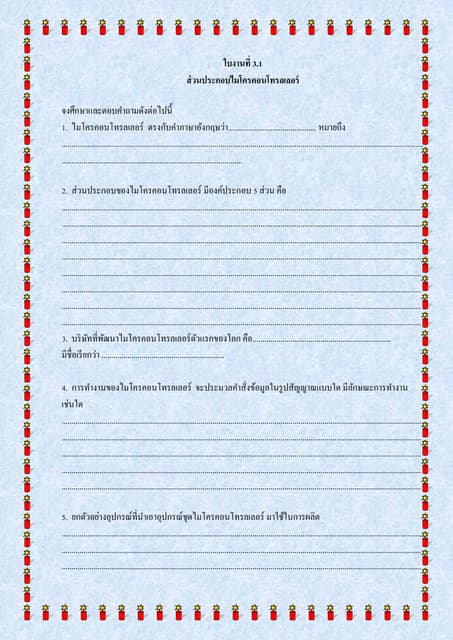 ใบงานที่ 3.1
ส่วนประกอบไมโครคอนโทรลเลอร์
จงศึกษาและตอบคำถามดังต่อไปนี้
1. ไมโครคอนโทรลเลอร์ ตรงกับคำภาษาอังกฤษว่า........................................ หมายถึง
2. ส่วนประกอบของไมโครคอนโทรลเลอร์ มีองค์ประกอบ 5 ส่วน คือ
3. บริษัทที่พัฒนาไมโครคอนโทรลเลอร์ตัวแรกของโลก คือ................................................................
มีชื่อเรียกว่า ........................................................
4. การทำงานของไมโครคอนโทรลเลอร์ จะประมวลคำสั่งข้อมูลในรูปสัญญาณแบบใด มีลักษณะการทำงาน
เช่นใด
5. ยกตัวอย่างอุปกรณ์ที่นำเอาอุปกรณ์ชุดไมโครคอนโทรลเลอร์ มาใช้ในการผลิต